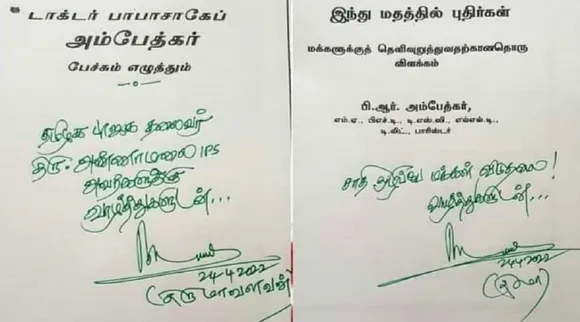 டாக்டர் பாபாசாகேப்
அம்பேத்கர்
பேச்சும் எழுத்தும்
தமிழக பாஜக தலைவர்
திரு. அண்ணாமலை IPS
அவர்களுக்கு
வாழ்த்துகளுடன்...
24-4-2022
(திருமாவளவன்)
இந்து மதத்தில் புதிர்கள்
மக்களுக்குத் தெளிவுறுத்துவதற்கானதொரு
விளக்கம்
பி.ஆர். அம்பேத்கர்,
எம்.ஏ., பிஎச்.டி., டி.எஸ்.ஸி., எல்எல்.டி.,
டி.லிட்., பாரிஸ்டர்
சாதி ஒழிப்பே மக்கள் விடுதலை!
வாழ்த்துகளுடன்...
24.4.2022